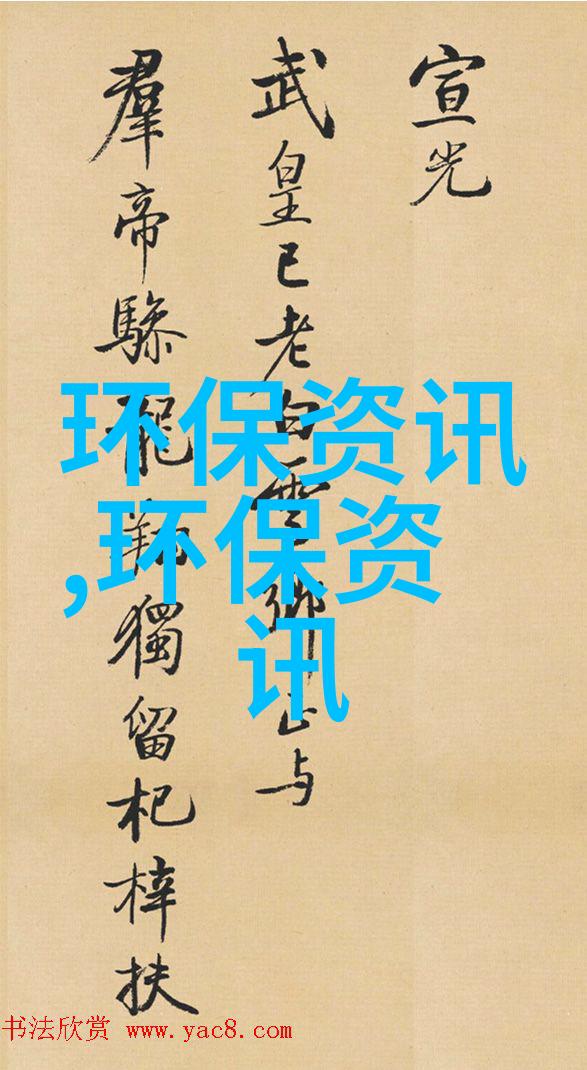 宣光
武皇已老白雲鄉正与
羣帝驂龍翔獨留杞梓扶
环保资讯
,环保资
讯
书法欣赏 www.yac8.com